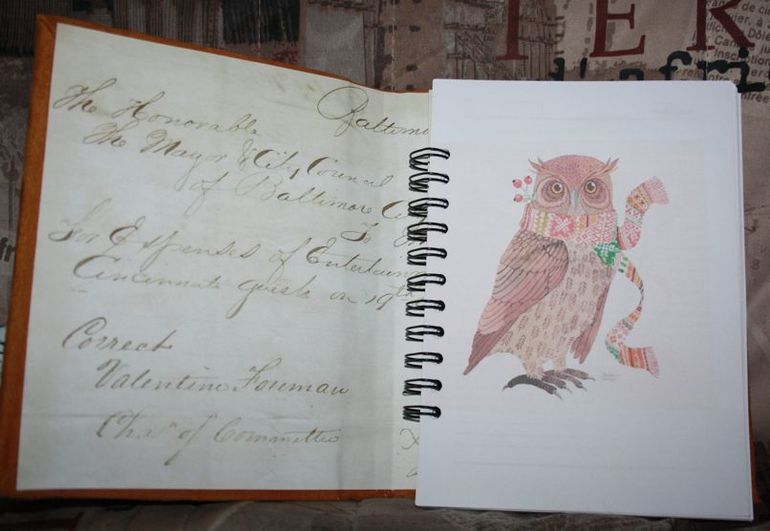 Baltimo
The Honorable
The Mayor & City Council
of Baltimore City
To
For Expenses of Entertain
Cincinnati guests on 19th
Correct
Valentine Foreman
Chrn of Committee
IER